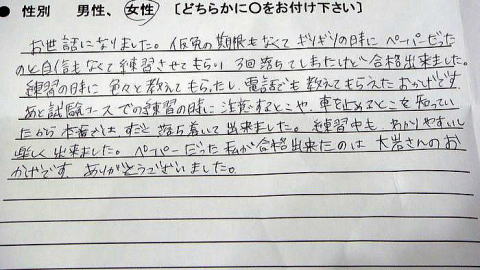 ● 性別　男性、女性　〔どちらかに〇をお付け下さい〕
お世話になりました。仮免の期限もなくてギリギリの時にペーパーだった
のと自信もなくて練習させてもらい3回落ちてしまたけど合格出来ました。
練習の時に色々と教えてもらったし、電話でも教えてもらえたおかげです
あと試験コースでの練習の時に注意するとこや、車を止めるとこを知ってい
たから本番ではすごく落ち着いて出来ました。練習中も、わかりやすいし
楽しく出来ました。ペーパーだった私が合格出来たのは大岩さんのお
かげです ありがとうございました。